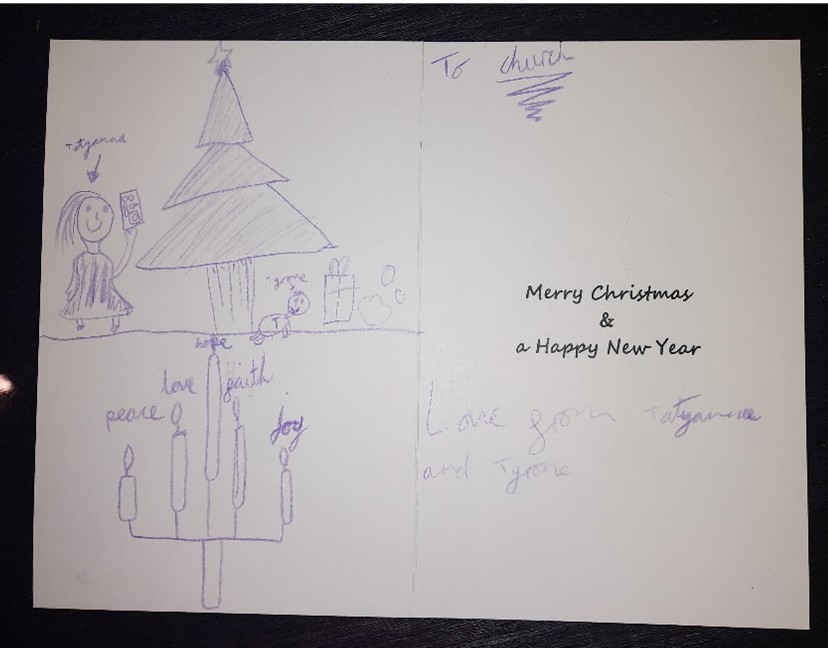 Tatyanna
Tyrone
T
hope
love faith
peace
Joy
To church
Merry Christmas
&
a Happy New Year
Love from Tatyanna
and Tyrone